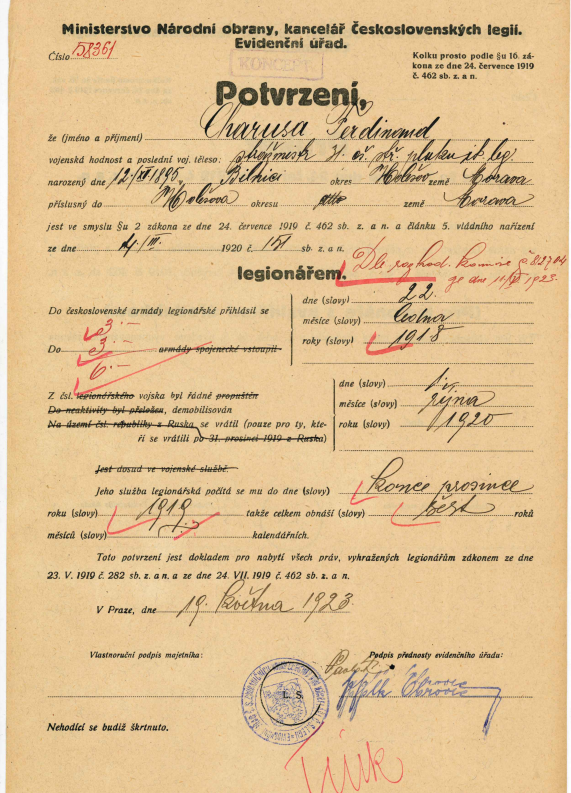 Ministerstvo Národní obrany, kancelář Československých legií.
Evidenční úřad.
Číslo 58361
KONCEPT
Kolku prosto podle §u 16. zá-
kona ze dne 24. července 1919
č. 462 sb. z. a n.
Potvrzení,
že (jméno a příjmení) Charusa Ferdinand
vojenská hodnost a poslední voj. těleso: strážmistr 31. čs. stř. pluku it. leg.
narozený dne 1895 Bílnici okres Holešov země Morava
příslušný do Holešova okresu země Morava
jest ve smyslu §u 2 zákona ze dne 24. července 1919 č. 462 sb. z. a n. a článku 5. vládního nařízení
ze dne 4./III. 1920 č. 151 sb. z. a n.
Dle rozhod. komise č. 82704
ze dne 1923.
legionářem.
Do československé armády legionářské přihlásil se
dne (slovy) 22.
měsíce (slovy) ledna
roky (slovy) 1918
3.-
Do armády spojenecké vstoupil
3.-
6.-
Z čsl. legionářského vojska byl řádně propuštěn
Do neaktivity byl přeložen, demobilisován
Na území čsl. republiky z Ruska se vrátil (pouze pro ty, kte-
ří se vrátili po 31. prosinci 1919 z Ruska)
dne (slovy) 1.
měsíce (slovy) října
roku (slovy) 1920
Jest dosud ve vojenské službě.
Jeho služba legionářská počítá se mu do dne (slovy) konce prosince
roku (slovy) 1919 takže celkem obnáší (slovy) šest roků
měsíců (slovy) kalendářních.
Toto potvrzení jest dokladem pro nabytí všech práv, vyhražených legionářům zákonem ze dne
23. V. 1919 č. 282 sb. z. a n. a ze dne 24. VII. 1919 č. 462 sb. z. a n.
V Praze, dne 19. května 1923.
Vlastnoruční podpis majetníka:
Podpis přednosty evidenčního úřadu:
L. S.
Nehodící se budiž škrtnuto.